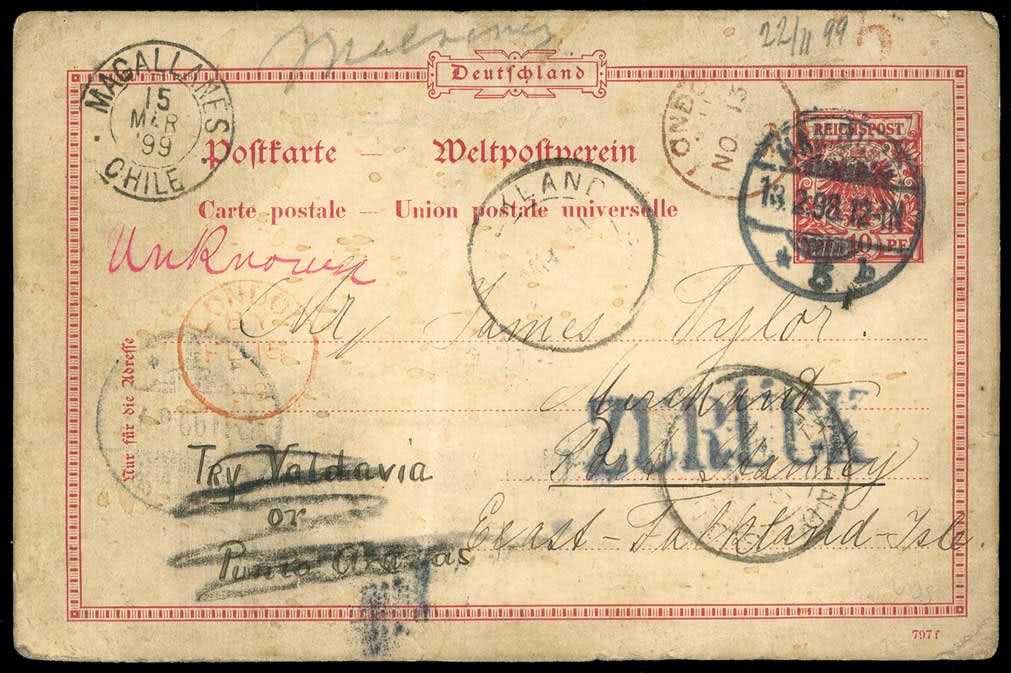 Malvinas
22/11 99
Deutschland
MAGALLANES
15
MAR
99
CHILE
NO 13
REICHSPOST
10 PF
13. 2. 98. 12-1N
* 5 b
Postkarte — Weltpostverein
Carte postale — Union postale universelle
KLAND
Unknown
LONDON
Mr James Tylor.
Nur für die Adresse
Merchant
ZURÜCK
Port Stanley
Try Valdavia
or
East-Falkland-Isle.
Punto Arenas
797f